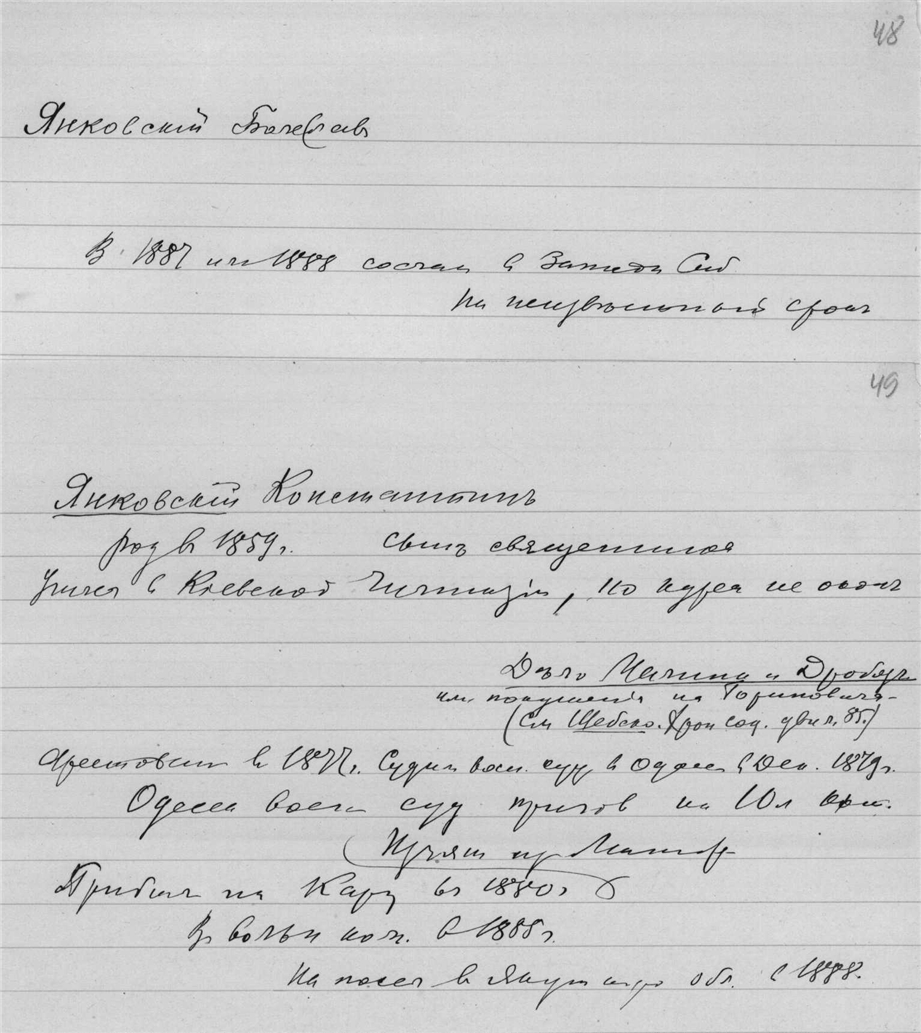 48
Янковскій Болеслав
В 1887 или 1888 сослан в Западн Сиб
на неизвестный срок
49
Янковскій Константинъ
род в 1859 г. сынъ священника
Учился в Киевской Гимназіи, но курса не оконч
Дело Малинка и Дробязг
или покушенія на Гориновича
(см Щебско. Хрон соц. движ. 85.)
Арестован в 1877 г. Судим воен. суд в Одессе в Дек. 1879 г.
Одесск воен суд пригов на 10 л
Прибыл на Кару в 1880 г
В вольн ком. в 1885 г.
На посел в Якутскую обл. в 1888.